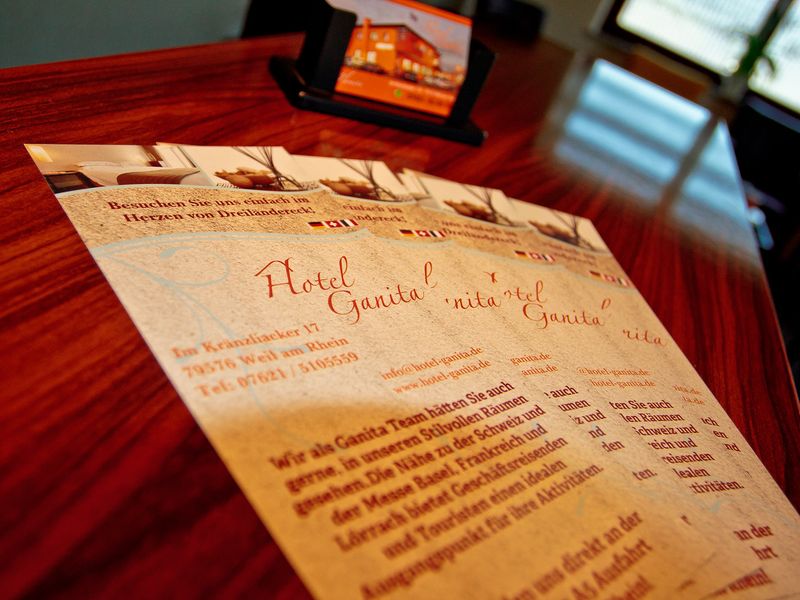 Besuchen Sie uns einfach im
Herzen von Dreiländereck!
Hotel
Ganita
Im Kränzliacker 17
79576 Weil am Rhein
Tel: 07621 / 5105559
info@hotel-ganita.de
www.hotel-ganita.de
Wir als Ganita Team hätten Sie auch
gerne, in unseren Stilvollen Räumen
gesehen.Die Nähe zu der Schweiz und
der Messe Basel, Frankreich und
Lörrach bietet Geschäftsreisenden
und Touristen einen idealen
Ausgangspunkt für ihre Aktivitäten.
uns direkt an der
A5 Ausfahrt
einfach im
ändereck!
nita
ganita.de
anita.de
auch
umen
z und
nd
den
otel
Ganita
@hotel-ganita.de
hotel-ganita.de
ten Sie auch
llen Räumen
chweiz und
eich und
eisenden
ealen
tivitäten.
an der
hrt
rita